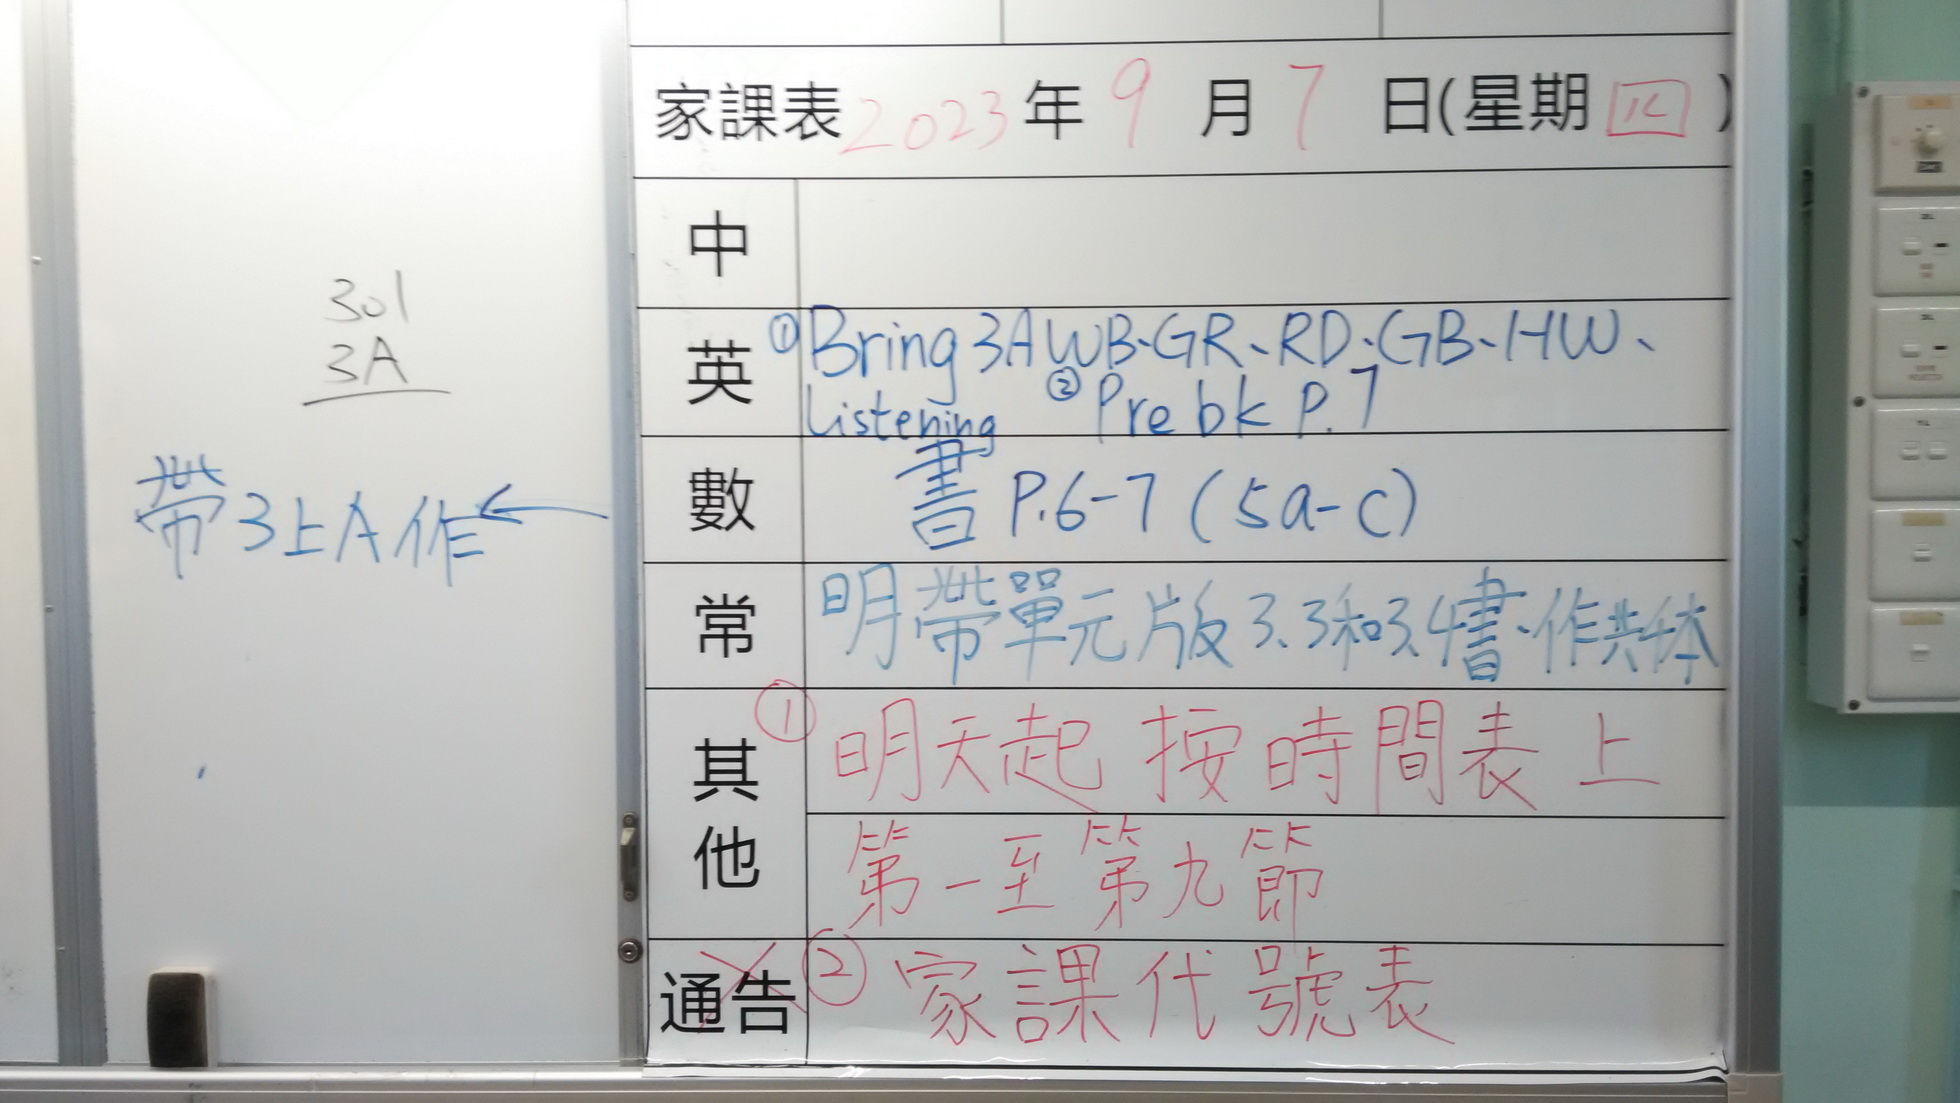 家課表 2023 年 9 月 7 日(星期四)
中
英 ①Bring 3A WB、GR、RD、GB、HW、
Listening ②Pre bk P.7
數 書 P.6-7 (5a-c)
常 明帶單元版3.3和3.4書、作共4本
其他 ①明天起按時間表上
第一至第九節
通告 ②家課代號表
301
3A
帶3上A作